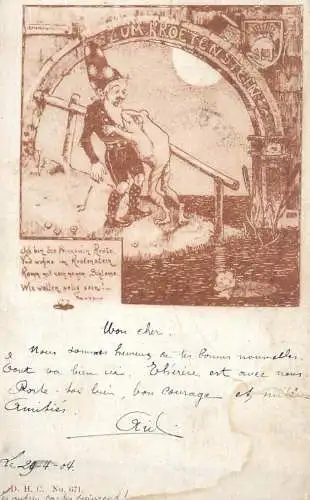 ZUM KROETENSTEHNE
Ich bin die Prinzessin Kröte
Und wohne im Krötenstein
Komm mit nach meinem Schlosse
Wir wollen selig sein!
Mon cher.
Nous sommes heureux de tes bonnes nouvelles.
Tout va bien ici. est avec nous
Porte-toi bien, bon courage et mille
Amitiés.
Le 29-4-04.
D. H. C. No. 671.